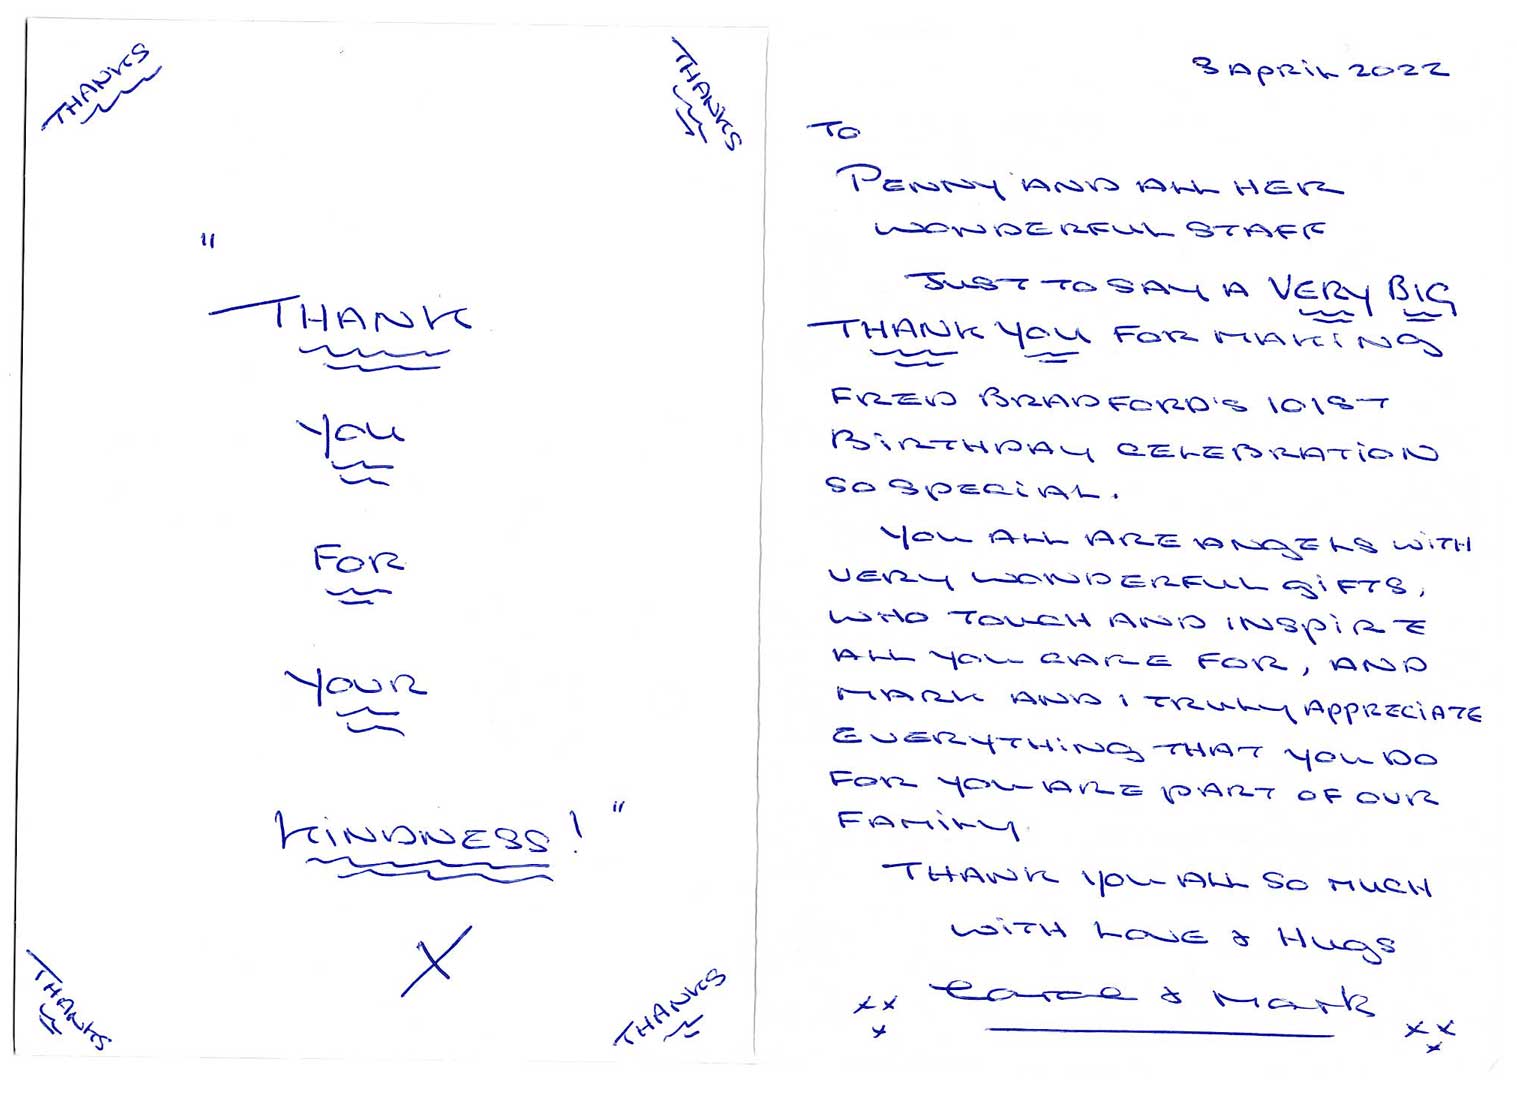 THANKS
THANKS
"
THANK
YOU
FOR
YOUR
KINDNESS! "
X
THANKS
THANKS
3 APRIL 2022
TO
PENNY AND ALL HER
WONDERFUL STAFF
JUST TO SAY A VERY BIG
THANK YOU FOR MAKING
FRED BRADFORD'S 101ST
BIRTHDAY CELEBRATION
SO SPECIAL.
YOU ALL ARE ANGELS WITH
VERY WONDERFUL GIFTS,
WHO TOUCH AND INSPIRE
ALL YOU CARE FOR, AND
MARK AND I TRULY APPRECIATE
EVERYTHING THAT YOU DO
FOR YOU ARE PART OF OUR
FAMILY.
THANK YOU ALL SO MUCH
WITH LOVE & HUGS
Carol & Mark
x x x
x x x